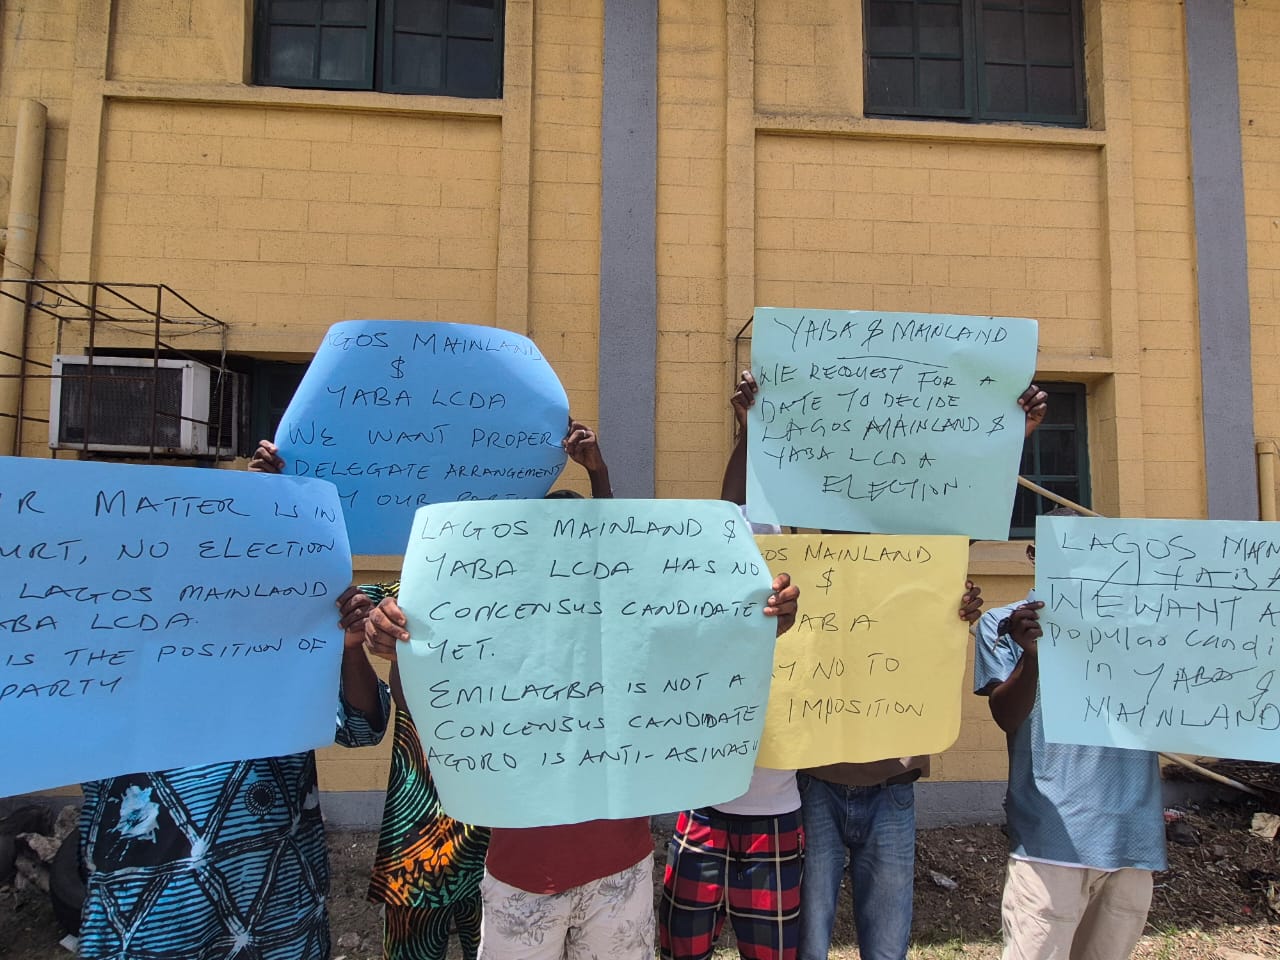 LAGOS MAINLAND
$
YABA LCDA
WE WANT PROPER
DELEGATE ARRANGEMENT
OUR
YABA $ MAINLAND
WE REQUEST FOR A
DATE TO DECIDE
LAGOS MAINLAND $
YABA LCDA
ELECTION.
MATTER IS IN
NO ELECTION
LAGOS MAINLAND
LCDA.
IS THE POSITION OF
PARTY
LAGOS MAINLAND $
YABA LCDA HAS NO
CONCENSUS CANDIDATE
YET.
EMILAGBA IS NOT A
CONCENSUS CANDIDATE
AGORO IS ANTI-ASIWAJU
MAINLAND
$
ABA
NO TO
IMPOSITION
LAGOS
WE WANT A
Popular
in YABA $
MAINLAND